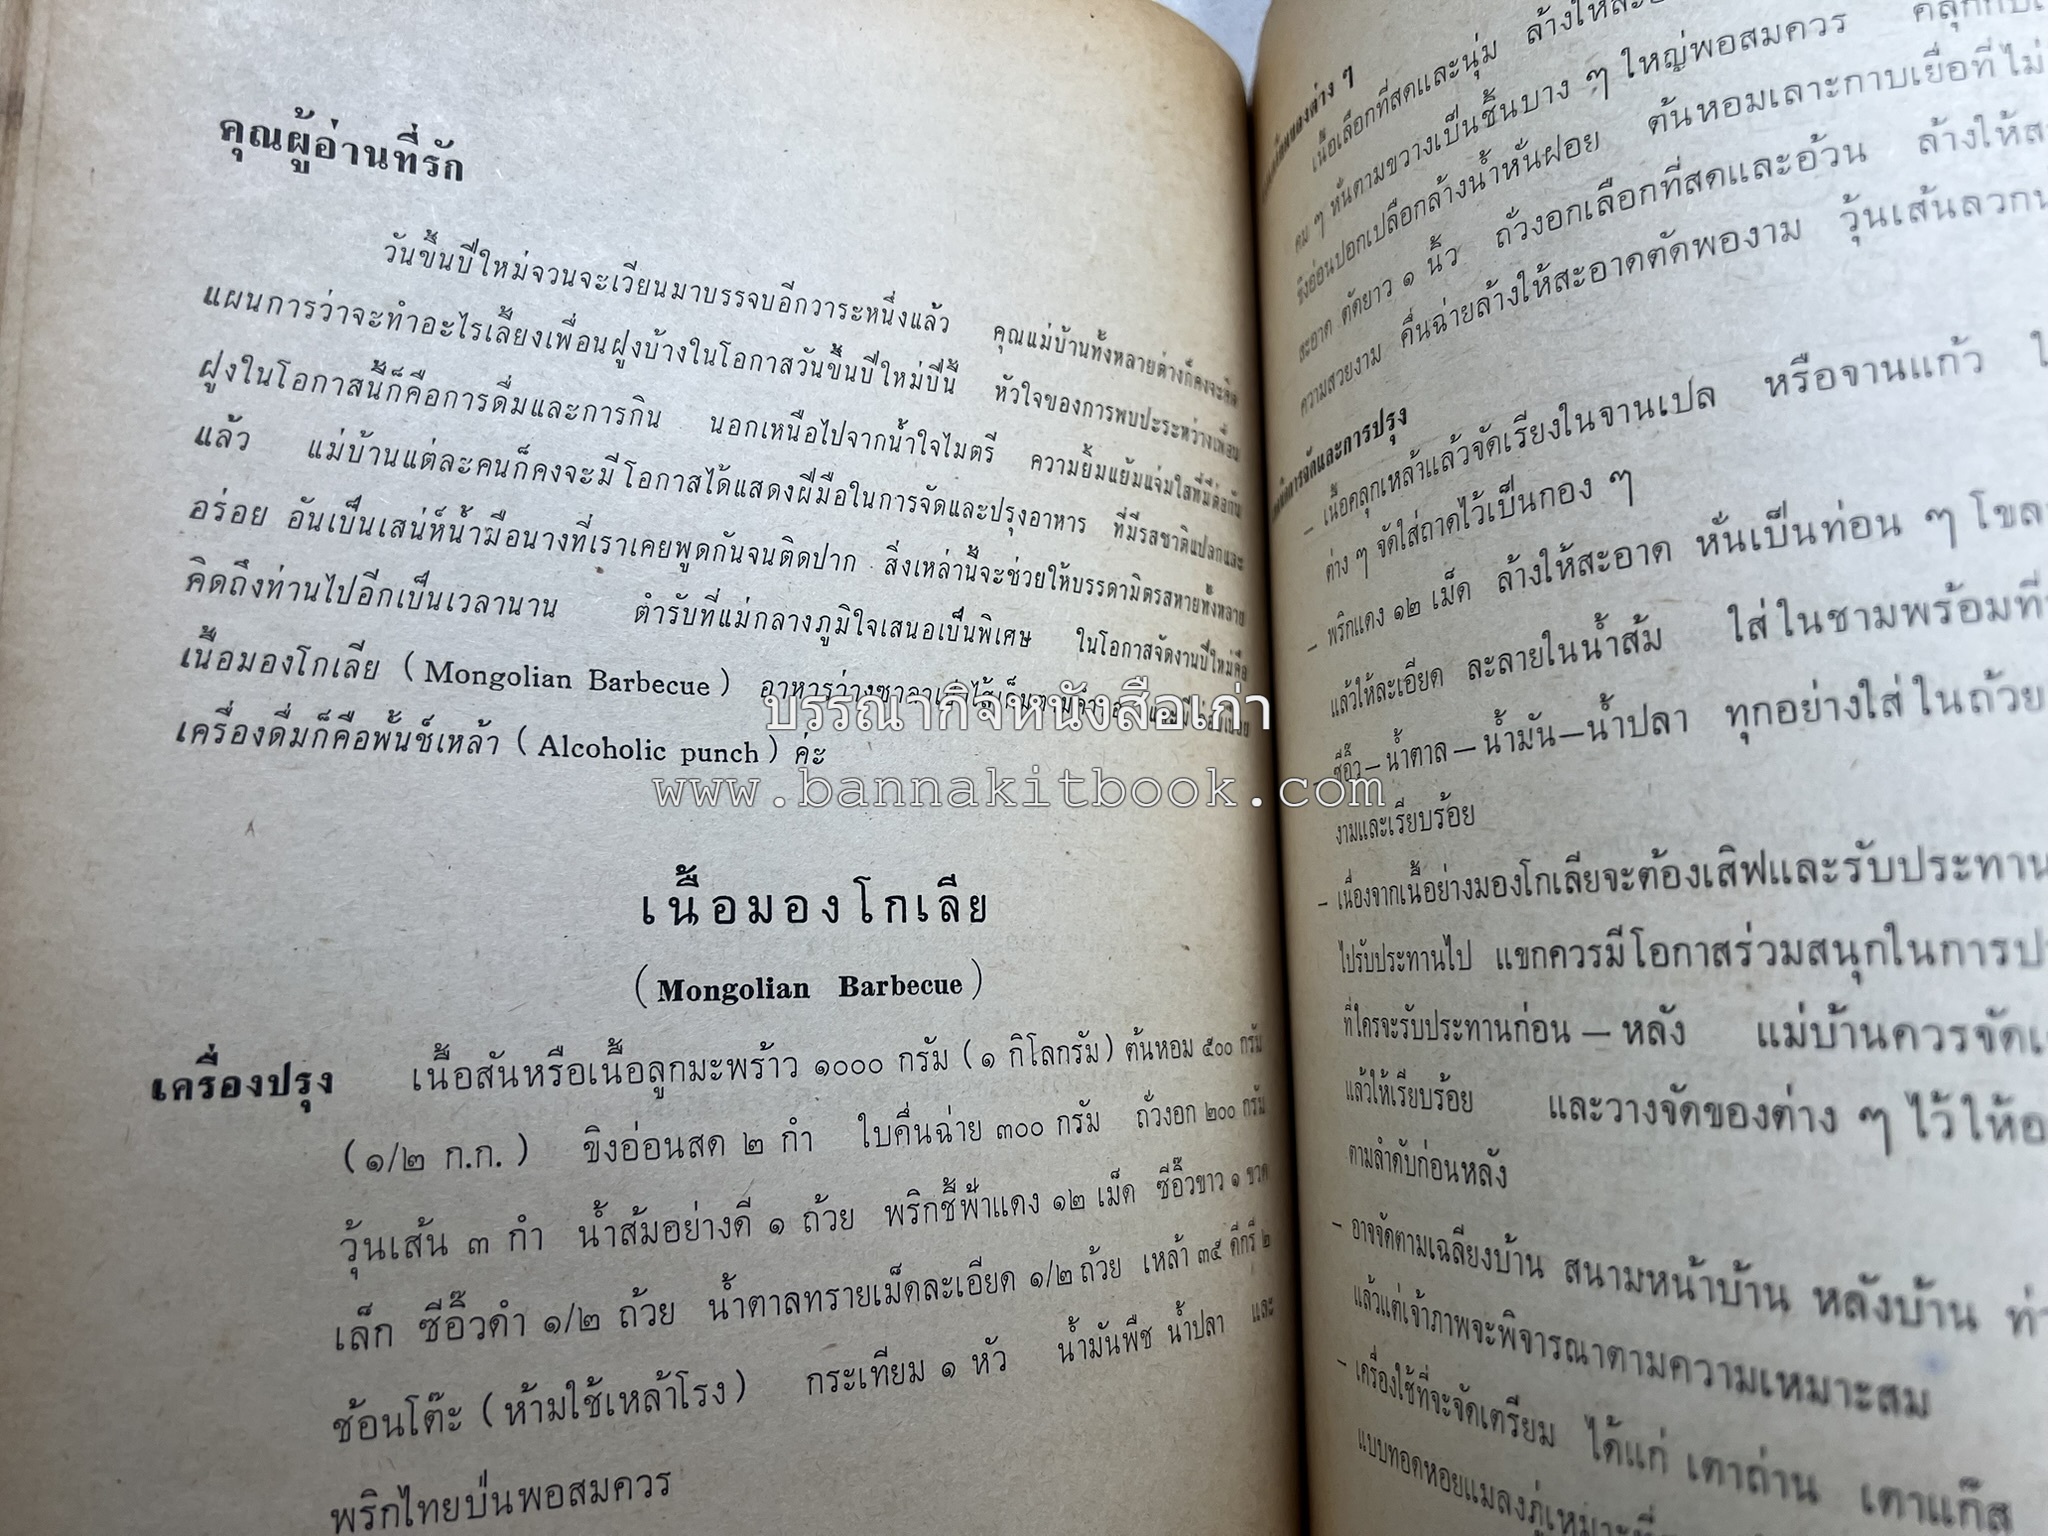 คุณผู้อ่านที่รัก
วันขึ้นปีใหม่จวนจะเวียนมาบรรจบอีกวาระหนึ่งแล้ว คุณแม่บ้านทั้งหลายต่างก็คงจะคิด
แผนการว่าจะทำอะไรเลี้ยงเพื่อนฝูงบ้างในโอกาสวันขึ้นปีใหม่ปีนี้ หัวใจของการพบปะระหว่างเพื่อน
ฝูงในโอกาสนี้ก็คือการดื่มและการกิน นอกเหนือไปจากน้ำใจไมตรี ความยิ้มแย้มแจ่มใสที่มีต่อกัน
แล้ว แม่บ้านแต่ละคนก็คงจะมีโอกาสได้แสดงฝีมือในการจัดและปรุงอาหาร ที่มีรสชาติแปลกและ
อร่อย อันเป็นเสน่ห์น้ำมือนางที่เราเคยพูดกันจนติดปาก สิ่งเหล่านี้จะช่วยให้บรรดามิตรสหายทั้งหลาย
คิดถึงท่านไปอีกเป็นเวลานาน ตำรับที่แม่กลางภูมิใจเสนอเป็นพิเศษ ในโอกาสจัดงานปีใหม่คือ
เนื้อมองโกเลีย (Mongolian Barbecue) อาหารว่าง
เครื่องดื่มก็คือพั้นช์เหล้า (Alcoholic punch) ค่ะ
บรรณากิจหนังสือเก่า
www.bannakitbook.com
เนื้อมองโกเลีย
(Mongolian Barbecue)
เครื่องปรุง เนื้อสันหรือเนื้อลูกมะพร้าว ๑๐๐๐ กรัม (๑ กิโลกรัม) ต้นหอม ๕๐๐ กรัม
(๑/๒ ก.ก.) ขิงอ่อนสด ๒ กำ ใบคื่นฉ่าย ๓๐๐ กรัม ถั่วงอก ๒๐๐ กรัม
วุ้นเส้น ๓ กำ น้ำส้มอย่างดี ๑ ถ้วย พริกชี้ฟ้าแดง ๑๒ เม็ด ซีอิ๊วขาว ๑ ขวด
เล็ก ซีอิ๊วดำ ๑/๒ ถ้วย น้ำตาลทรายเม็ดละเอียด ๑/๒ ถ้วย เหล้า ๓๕ ดีกรี ๒
ช้อนโต๊ะ (ห้ามใช้เหล้าโรง) กระเทียม ๑ หัว น้ำมันพืช น้ำปลา และ
พริกไทยป่นพอสมควร
ของต่าง ๆ
เนื้อเลือกที่สดและนุ่ม ล้างให้
คม ๆ หั่นตามขวางเป็นชิ้นบาง ๆ ใหญ่พอสมควร
ขิงอ่อนปอกเปลือกล้างน้ำหั่นฝอย ต้นหอมเลาะกาบเยื่อที่ไม่
สะอาด ตัดยาว ๑ นิ้ว ถั่วงอกเลือกที่สดและอ้วน ล้างให้
ความสวยงาม คื่นฉ่ายล้างให้สะอาดตัดพองาม วุ้นเส้นลวก
การจัดและการปรุง
– เนื้อคลุกเหล้าแล้วจัดเรียงในจานเปล หรือจานแก้ว
ต่าง ๆ จัดใส่ถาดไว้เป็นกอง ๆ
– พริกแดง ๑๒ เม็ด ล้างให้สะอาด หั่นเป็นท่อน ๆ โขลก
แล้วให้ละเอียด ละลายในน้ำส้ม ใส่ในชามพร้อมที่
– ซีอิ๊ว – น้ำตาล – น้ำมัน – น้ำปลา ทุกอย่างใส่ในถ้วย
งามและเรียบร้อย
– เนื่องจากเนื้อย่างมองโกเลียจะต้องเสิฟและรับประทาน
ไปรับประทานไป แขกควรมีโอกาสร่วมสนุกในการ
ที่ใครจะรับประทานก่อน – หลัง แม่บ้านควรจัด
แล้วให้เรียบร้อย และวางจัดของต่าง ๆ ไว้ให้
ตามลำดับก่อนหลัง
– อาจจัดตามเฉลียงบ้าน สนามหน้าบ้าน หลังบ้าน
แล้วแต่เจ้าภาพจะพิจารณาตามความเหมาะสม
– เครื่องใช้ที่จะจัดเตรียม ได้แก่ เตาถ่าน เตาแก๊ส
แบบทอดหอยแมลงภู่